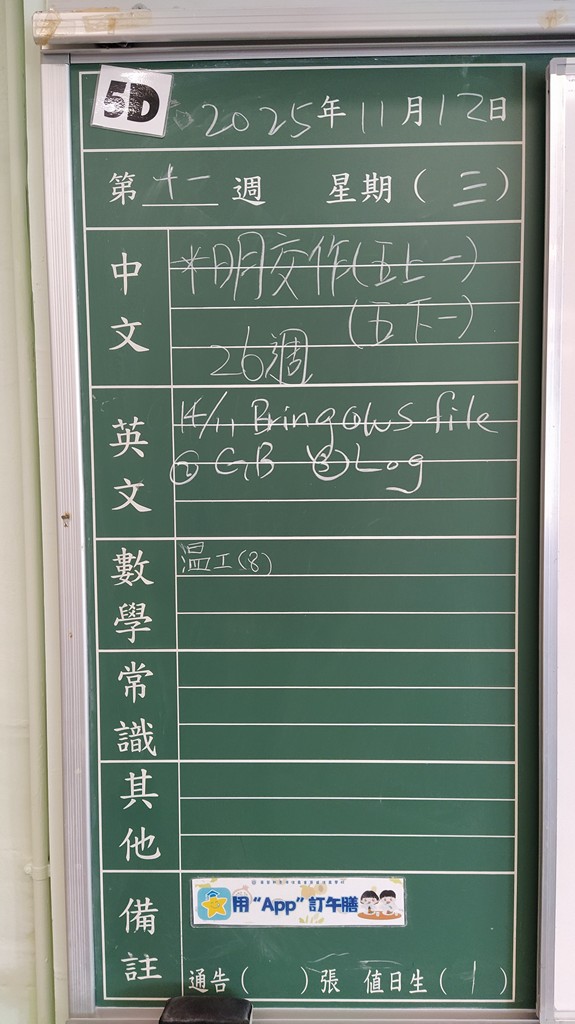 5D
2025年11月12日
第十一週 星期(三)
中文
*明交作(五上一)
(五下一)
26週
英文
14/11 Bring ① WS file
② GB ③ Log
數學
溫工(8)
常識
其他
備註
用“App”訂午膳
通告( )張 值日生(1)